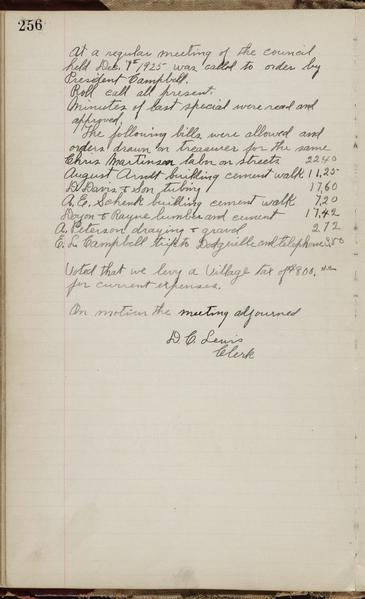 256
At a regular meeting of the council
held Dec. 7th 1925 was called to order by
President Campbell.
Roll call all present.
Minutes of last special were read and
approved.
The following bills were allowed and
orders drawn on treasurer for the same
Chris Martinson labor on streets 22.40
August Arndt building cement walk 11.25
D. Davis & Son tubing 17.60
A. E. Schenk building cement walk 7.20
Doyon & Rayne lumber and cement 17.42
A. Peterson draying & gravel 2.72
E. L. Campbell trip to Dodgeville and telephone 3.50
Voted that we levy a Village tax of $800.
for current expenses.
On motion the meeting adjourned
D. C. Lewis
Clerk